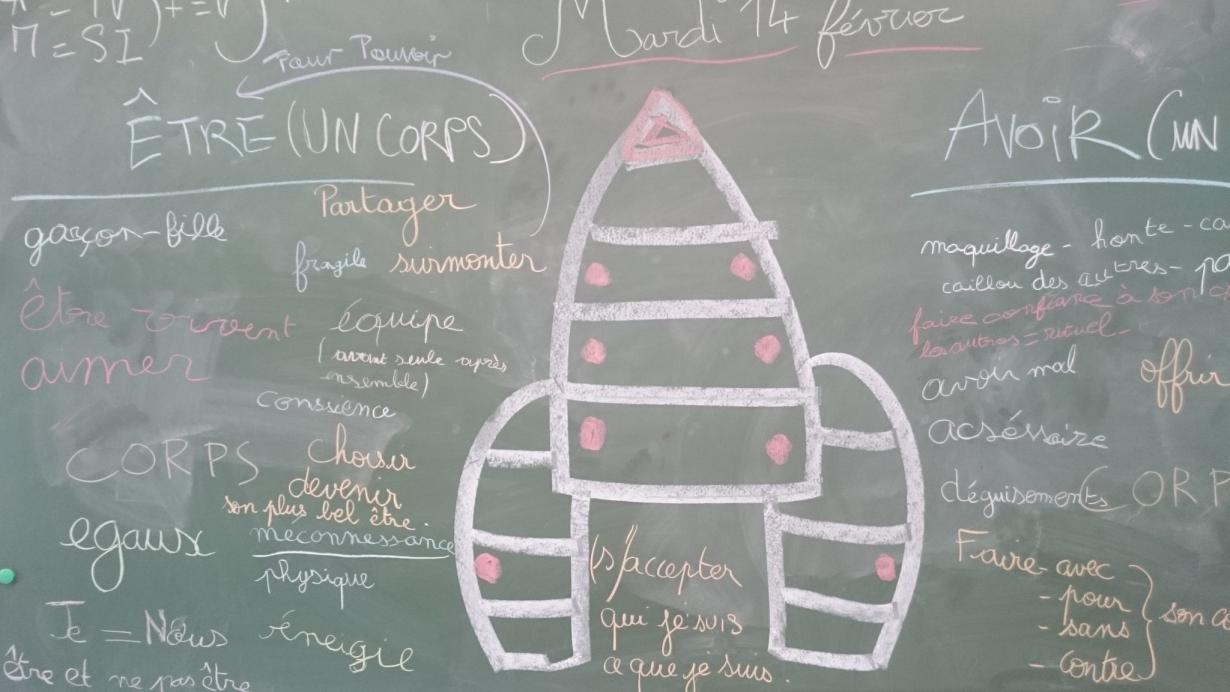 M = SI
Mardi 14 février
Pour Pouvoir
ÊTRE (UN CORPS)
garçon-fille
Partager
fragile surmonter
être
aimer
équipe
(avant seule après
ensemble)
conssience
CORPS
Choisir
devenir
son plus bel être.
egaux
méconnessance
physique
Je = Nous
énergie
être et ne pas être
(s')accepter
qui je suis
a que je suis.
AVOIR (UN
maquillage - honte - ca
caillou des autres - pa
faire confiance à son c
les autres = rituel -
avoir mal
offrir
acséssoire
déguisements
CORP
Faire - avec
- pour
- sans
- contre
son co